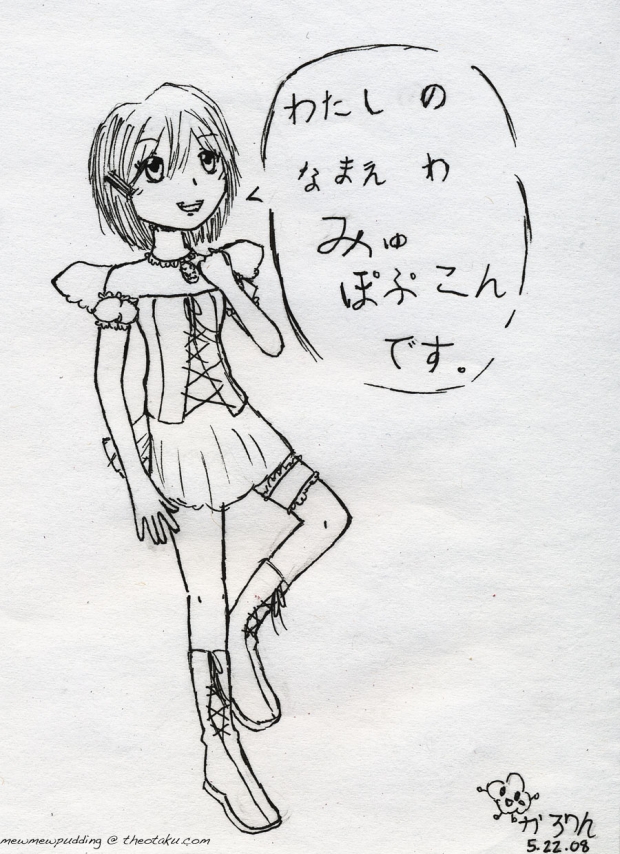 わたし の
なまえ わ
みゅ
ぽぷこん
です。
かろりん
5.22.08
mewmewpudding @ theotaku.com